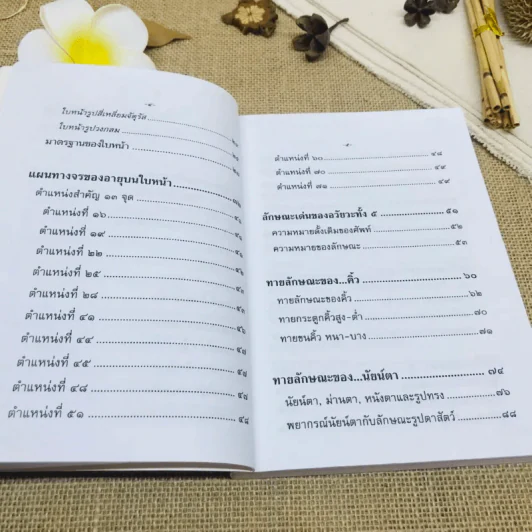 ใบหน้ารูปสี่เหลี่ยมจัตุรัส
ใบหน้ารูปวงกลม
มาตรฐานของใบหน้า
แผนทางจรของอายุบนใบหน้า
ตำแหน่งสำคัญ ๑๓ จุด
ตำแหน่งที่ ๑๖
ตำแหน่งที่ ๑๙
ตำแหน่งที่ ๒๒
ตำแหน่งที่ ๒๕
ตำแหน่งที่ ๒๘
ตำแหน่งที่ ๔๑
ตำแหน่งที่ ๔๔
ตำแหน่งที่ ๔๕
ตำแหน่งที่ ๔๘
ตำแหน่งที่ ๕๑
ตำแหน่งที่ ๖๐ ๔๘
ตำแหน่งที่ ๗๐ ๔๙
ตำแหน่งที่ ๗๑ ๔๙
ลักษณะเด่นของอวัยวะทั้ง ๕ ๕๑
ความหมายดั้งเดิมของศัพท์ ๕๒
ความหมายของลักษณะ ๕๓
ทายลักษณะของ...คิ้ว ๖๐
ทายลักษณะของคิ้ว ๖๒
ทายกระดูกคิ้วสูง-ต่ำ ๗๐
ทายขนคิ้ว หนา-บาง ๗๑
ทายลักษณะของ...นัยน์ตา ๗๔
นัยน์ตา, ม่านตา, หนังตาและรูปทรง ๗๖
พยากรณ์นัยน์ตากับลักษณะรูปตาสัตว์ ๘๘